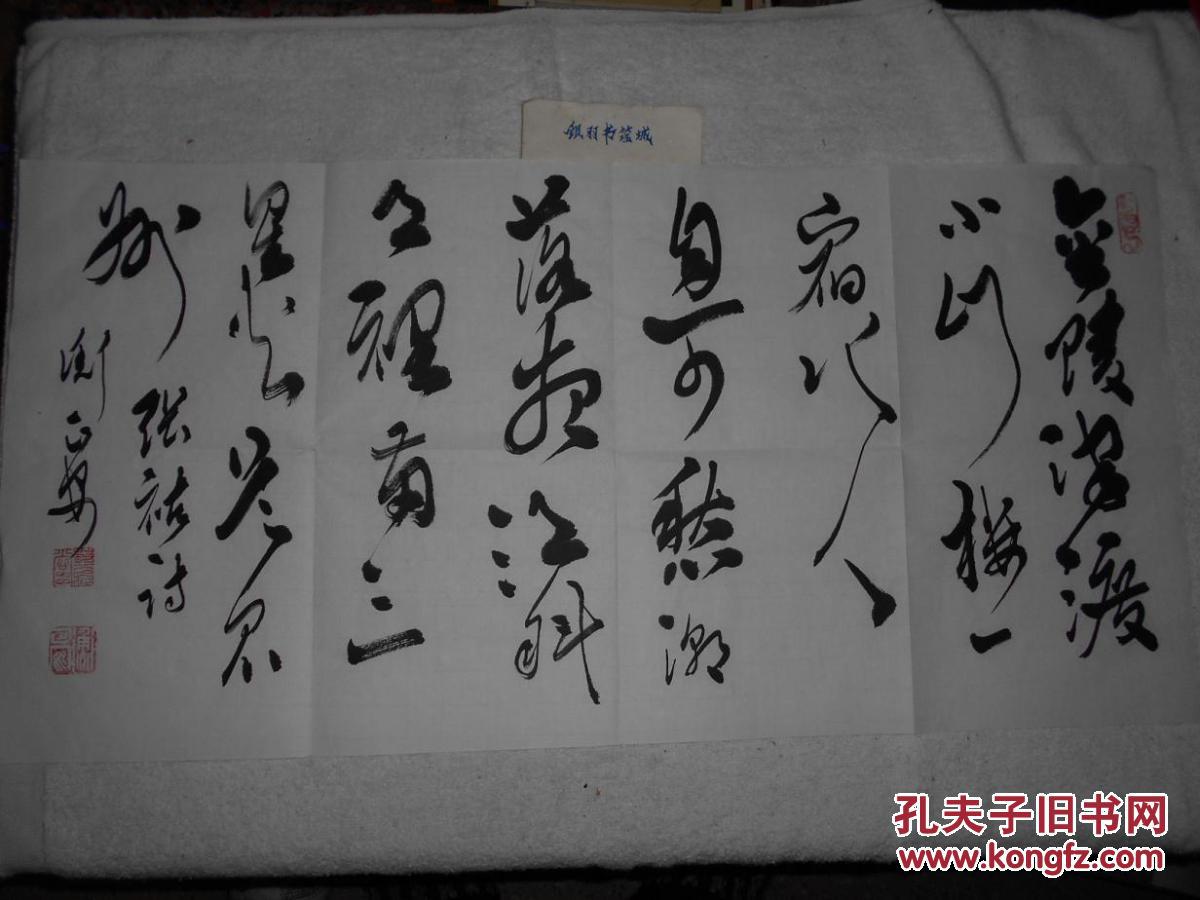 金陵津渡
小山楼一
宿行人
自可愁潮
落夜江斜
月裡两三
星火是瓜
州
张祜诗
衛正安
孔夫子旧书网
www.kongfz.com